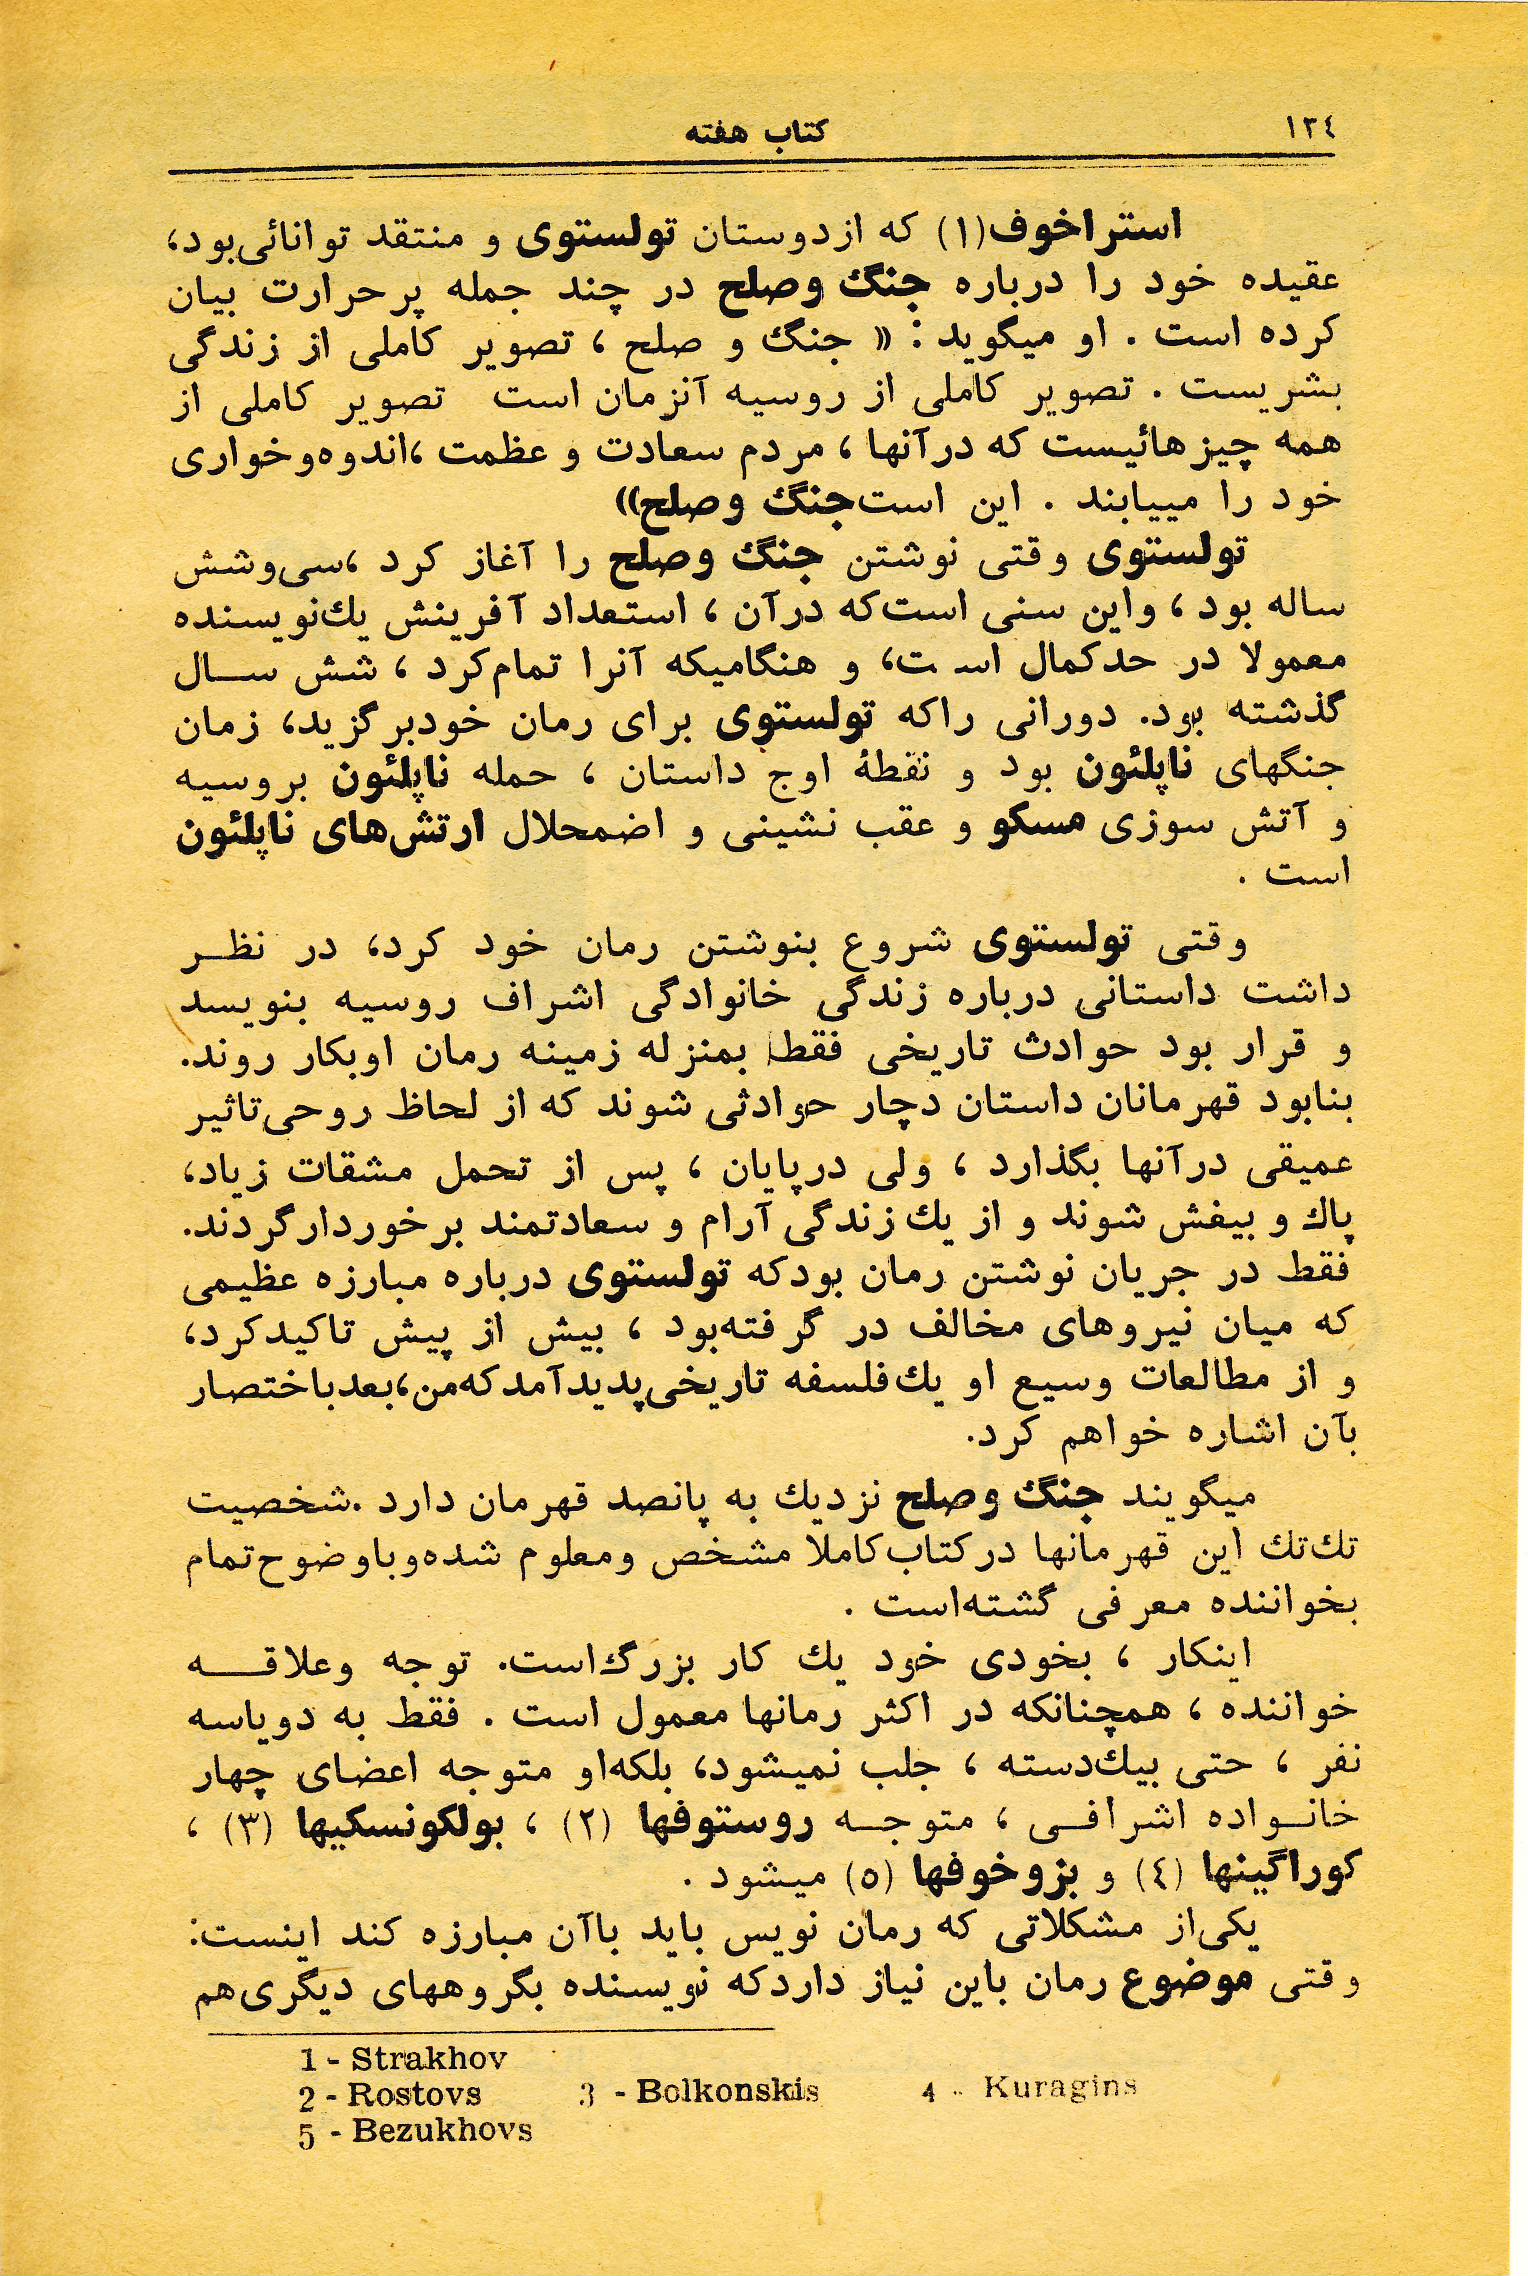 ۱۳٤
کتاب هفته
استراخوف(۱) که ازدوستان تولستوی و منتقد توانائی‌بود،
عقیده خود را درباره جنگ وصلح در چند جمله پرحرارت بیان
کرده است . او میگوید : « جنگ و صلح ، تصویر کاملی از زندگی
بشریست . تصویر کاملی از روسیه آنزمان است تصویر کاملی از
همه چیزهائیست که درآنها ، مردم سعادت و عظمت ،اندوه‌وخواری
خود را مییابند . این است‌جنگ وصلح))
تولستوی وقتی نوشتن جنگ وصلح را آغاز کرد ،سی‌وشش
ساله بود ، واین سنی است‌که درآن ، استعداد آفرینش یك‌نویسنده
معمولا در حدکمال است، و هنگامیکه آنرا تمام‌کرد ، شش ســال
گذشته بود. دورانی راکه تولستوی برای رمان خودبرگزید، زمان
جنگهای ناپلئون بود و نقطۀ اوج داستان ، حمله ناپلئون بروسیه
و آتش سوزی مسکو و عقب نشینی و اضمحلال ارتش‌های ناپلئون
است .
وقتی تولستوی شروع بنوشتن رمان خود کرد، در نظــر
داشت داستانی درباره زندگی خانوادگی اشراف روسیه بنویسد
و قرار بود حوادث تاریخی فقط بمنزله زمینه رمان اوبکار روند.
بنابود قهرمانان داستان دچار حوادثی شوند که از لحاظ روحی‌تاثیر
عمیقی درآنها بگذارد ، ولی درپایان ، پس از تحمل مشقات زیاد،
پاك و بیغش شوند و از یك زندگی آرام و سعادتمند برخوردارگردند.
فقط در جریان نوشتن رمان بودکه تولستوی درباره مبارزه عظیمی
که میان نیروهای مخالف در گرفته‌بود ، بیش از پیش تاکیدکرد،
و از مطالعات وسیع او یك‌فلسفه تاریخی‌پدیدآمدکه‌من،بعدباختصار
بآن اشاره خواهم کرد.
میگویند جنگ وصلح نزدیك به پانصد قهرمان دارد .شخصیت
تك‌تك این قهرمانها درکتاب‌کاملا مشخص ومعلوم شده‌وباوضوح‌تمام
بخواننده معرفی گشته‌است .
اینکار ، بخودی خود یك کار بزرگ‌است. توجه وعلاقــه
خواننده ، همچنانکه در اکثر رمانها معمول است . فقط به دویاسه
نفر ، حتی بیك‌دسته ، جلب نمیشود، بلکه‌او متوجه اعضای چهار
خانــواده اشرافــی ، متوجــه روستوفها (۲) ، بولکونسکیها (۳) ،
کوراگینها (٤) و بزوخوفها (٥) میشود .
یکی‌از مشکلاتی که رمان نویس باید باآن مبارزه کند اینست:
وقتی موضوع رمان باین نیاز داردکه نویسنده بگروههای دیگری‌هم
1 - Strakhov
2 - Rostovs 3 - Bolkonskis 4 - Kuragins
5 - Bezukhovs